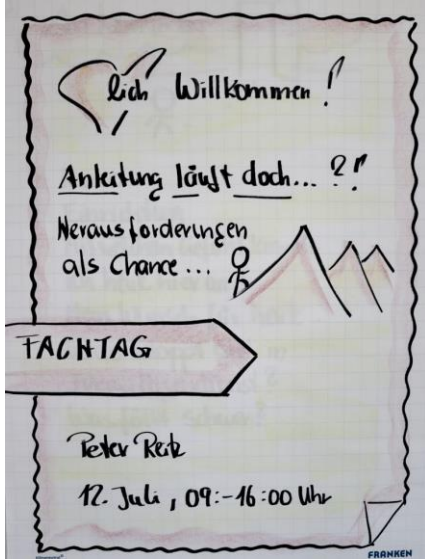 lich Willkommen!
Anleitung läuft doch...?!
Herausforderungen
als Chance...
FACHTAG
Peter Reitz
12. Juli, 09:-16:00 Uhr
FRANKEN